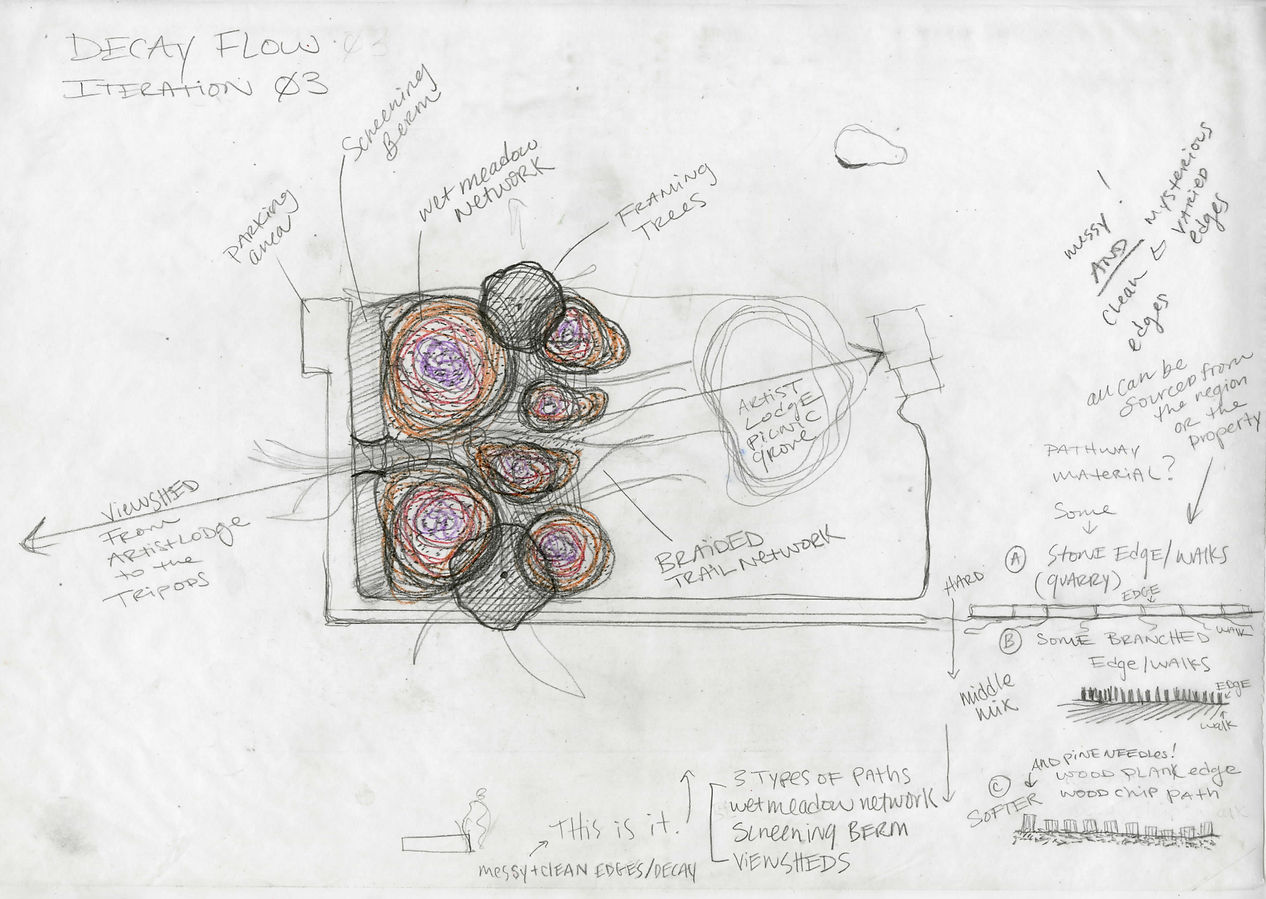 DECAY FLOW 03
ITERATION 03
Screening
Berm
wet meadow
Network
Framing
Trees
parking
area
messy!
AND
clean
edges
← mysterious
varied
edges
all can be
sourced from
the region
OR the
property
Artist
Lodge
Picnic
Grove
VIEWSHED
From
Artist Lodge
to the
TRIPODS
BRAIDED
TRAIL NETWORK
PATHWAY
MATERIAL?
Some
A STONE EDGE/WALKS
(QUARRY)
EDGE
WALK
HARD
B SOME BRANCHED
Edge/WALKS
EDGE
walk
middle
mix
AND PINE NEEDLES!
C WOOD PLANK edge
WOOD CHIP path
SOFTER
3 TYPES OF PATHS
wet meadow network
Screening BERM
VIEWSHEDS
THIS IS IT.
messy+CLEAN EDGES/DECAY